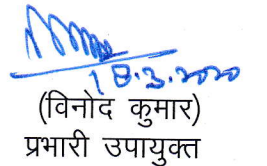 18.3.2020
(विनोद कुमार)
प्रभारी उपायुक्त